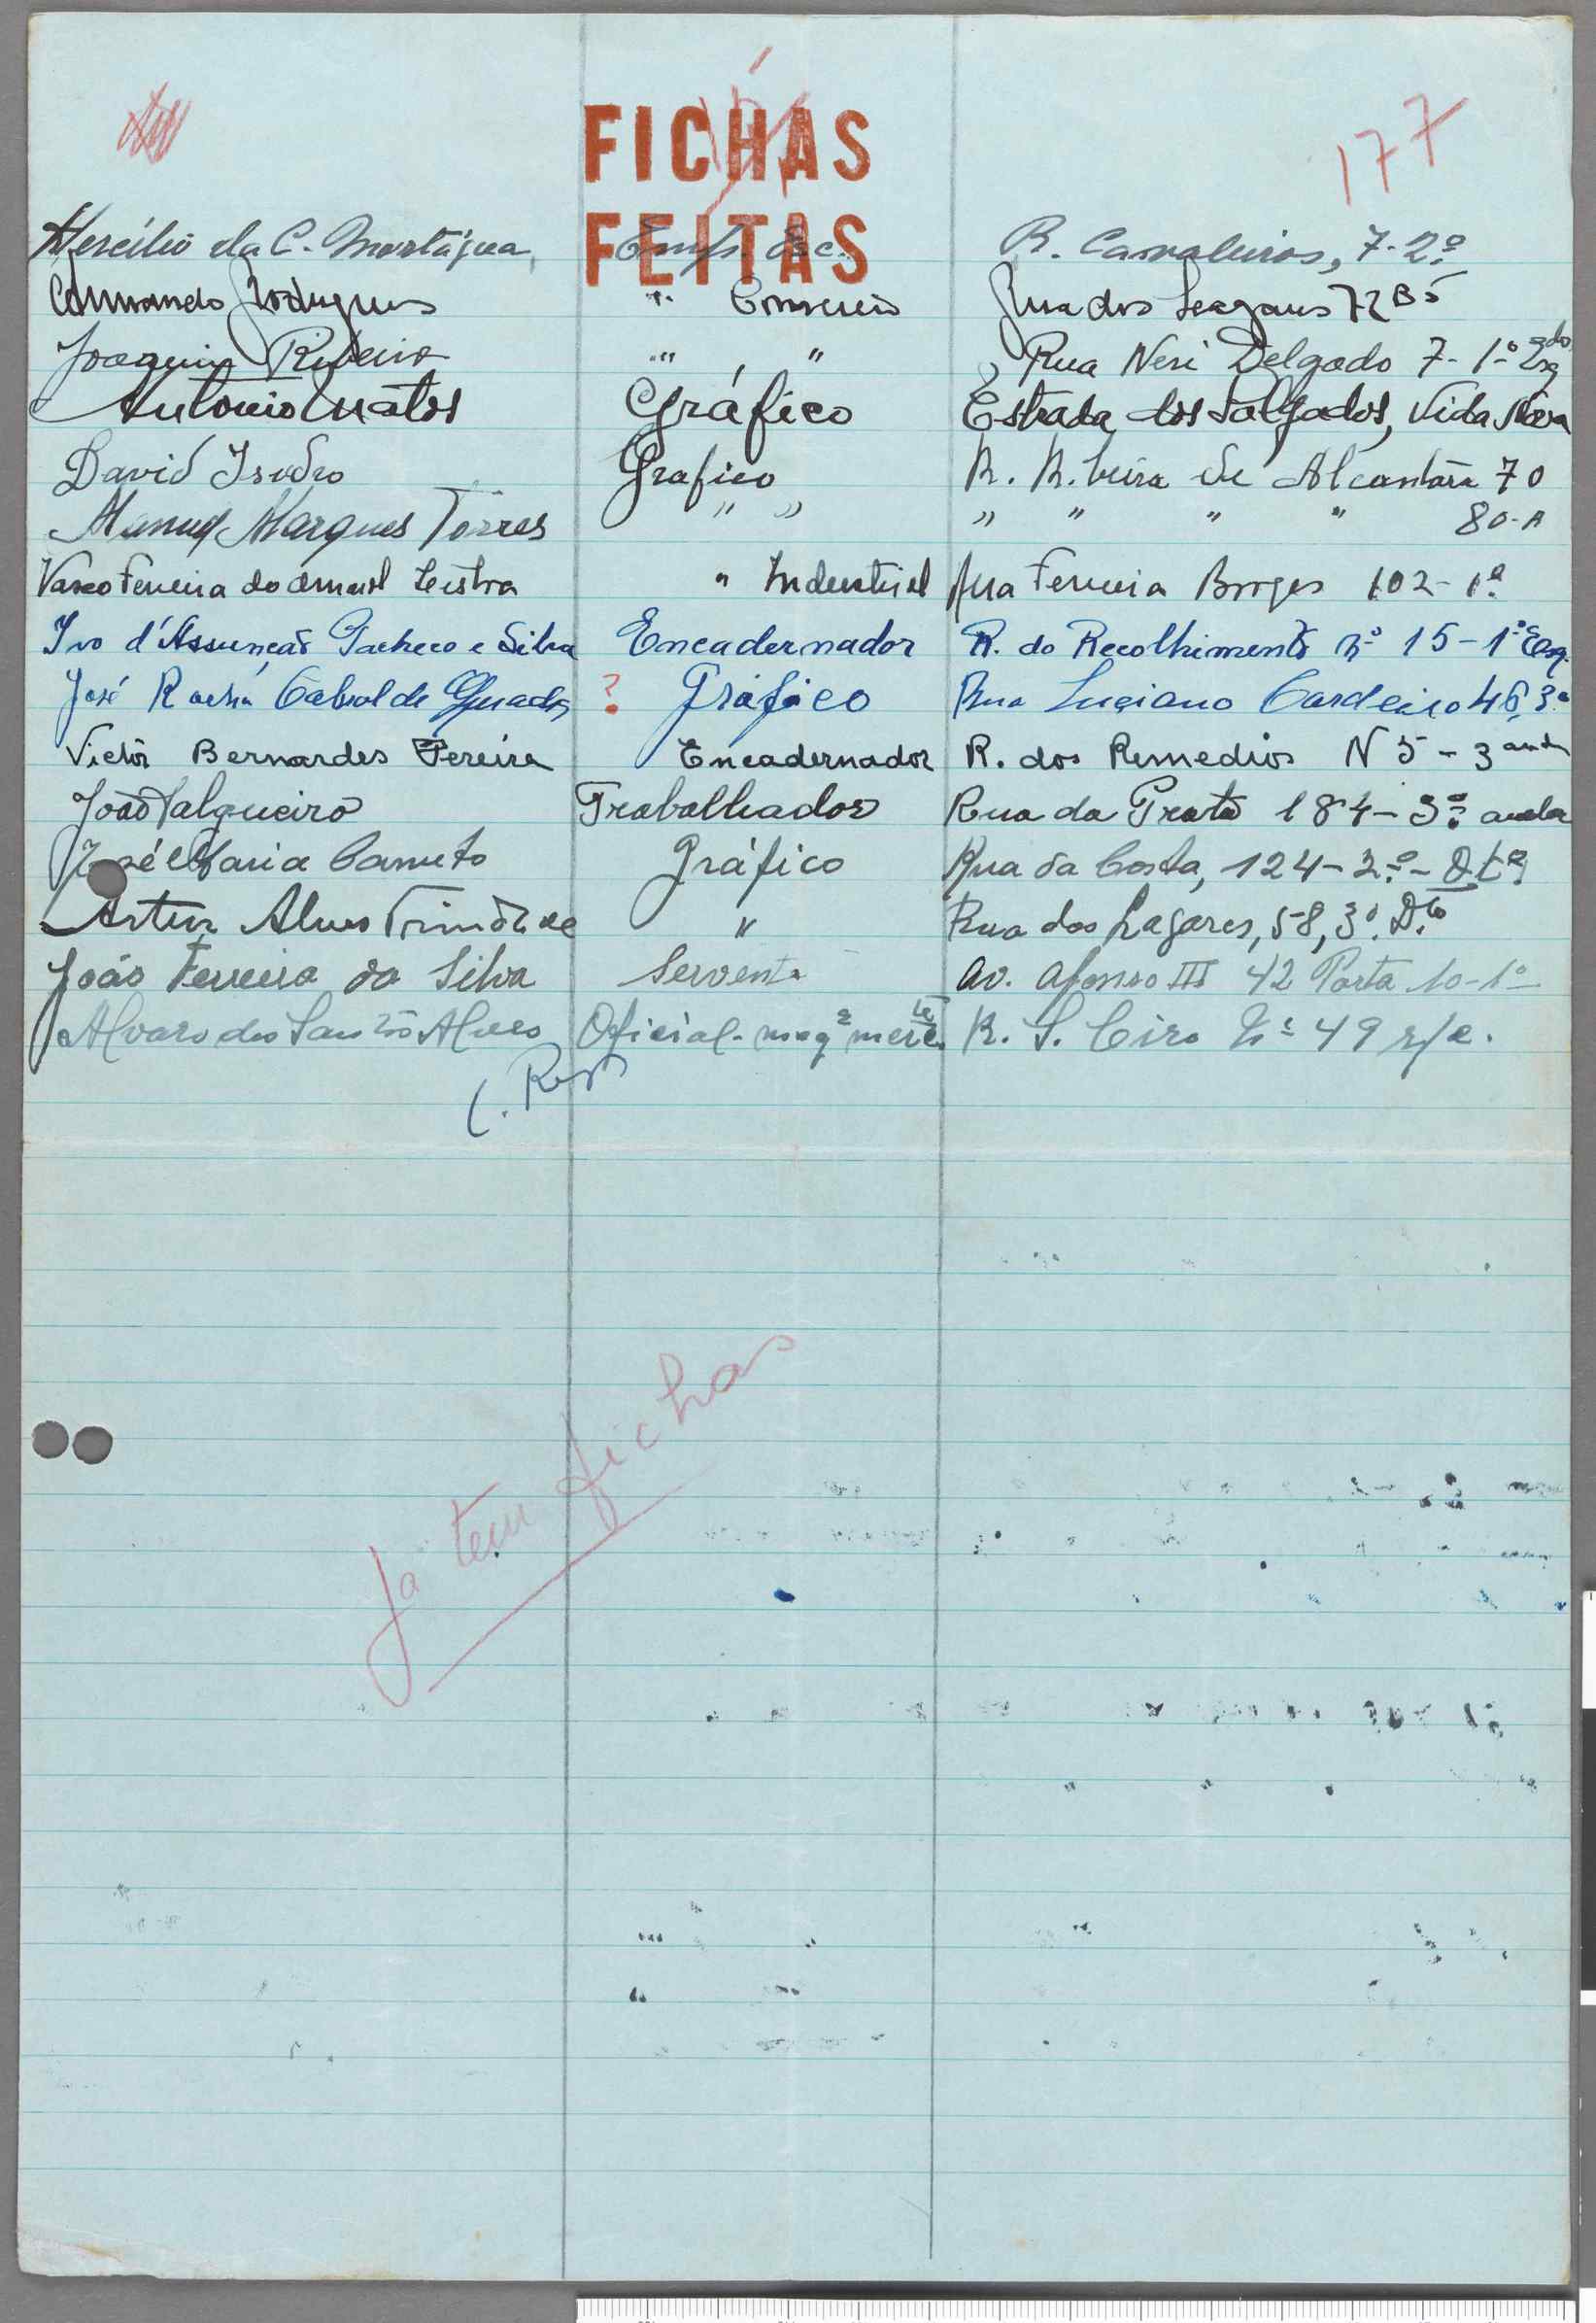 FICHAS
177
FEITAS
Hercílio da C. Mortágua Emp. Esc. R. Cavaleiros, 7-2º
Armando Rodrigues " Comercio Rua dos 72 B 5
Joaquim Ribeiro " " Rua Neri Delgado 7-1º Esqdo
Antonio Matos Gráfico Estrada dos Salgados, Vida Nova
David Isidro Grafico R. R. beira de Alcantâra 70
Manuel Marques Torres " " " " " " 80-A
Vasco Ferreira do Amaral " Industrial Rua Ferreira Borges 102-1º
Ivo d'Assunção Pacheco e Silva Encadernador R. do Recolhimento nº 15-1º Esq.
José Rocha Cabral de ? Gráfico Rua Luciano Cordeiro 46, 3º
Victôr Bernardes Pereira Encadernador R. dos Remedios N 5-3 andr
João Salgueiro Trabalhador Rua da Prata 184-3º andar
José Maria Canuto Gráfico Rua da Costa, 124-2º-Dtº
Artur Alves Trindade " Rua dos Lagares, 58, 3º. D.to
João Ferreira da Silva Servente Av. Afonso III 42 Porta 10-1º
Alvaro dos Santos Alves Oficial R. S. Ciro Nº 49 r/c.
Já tem fichas